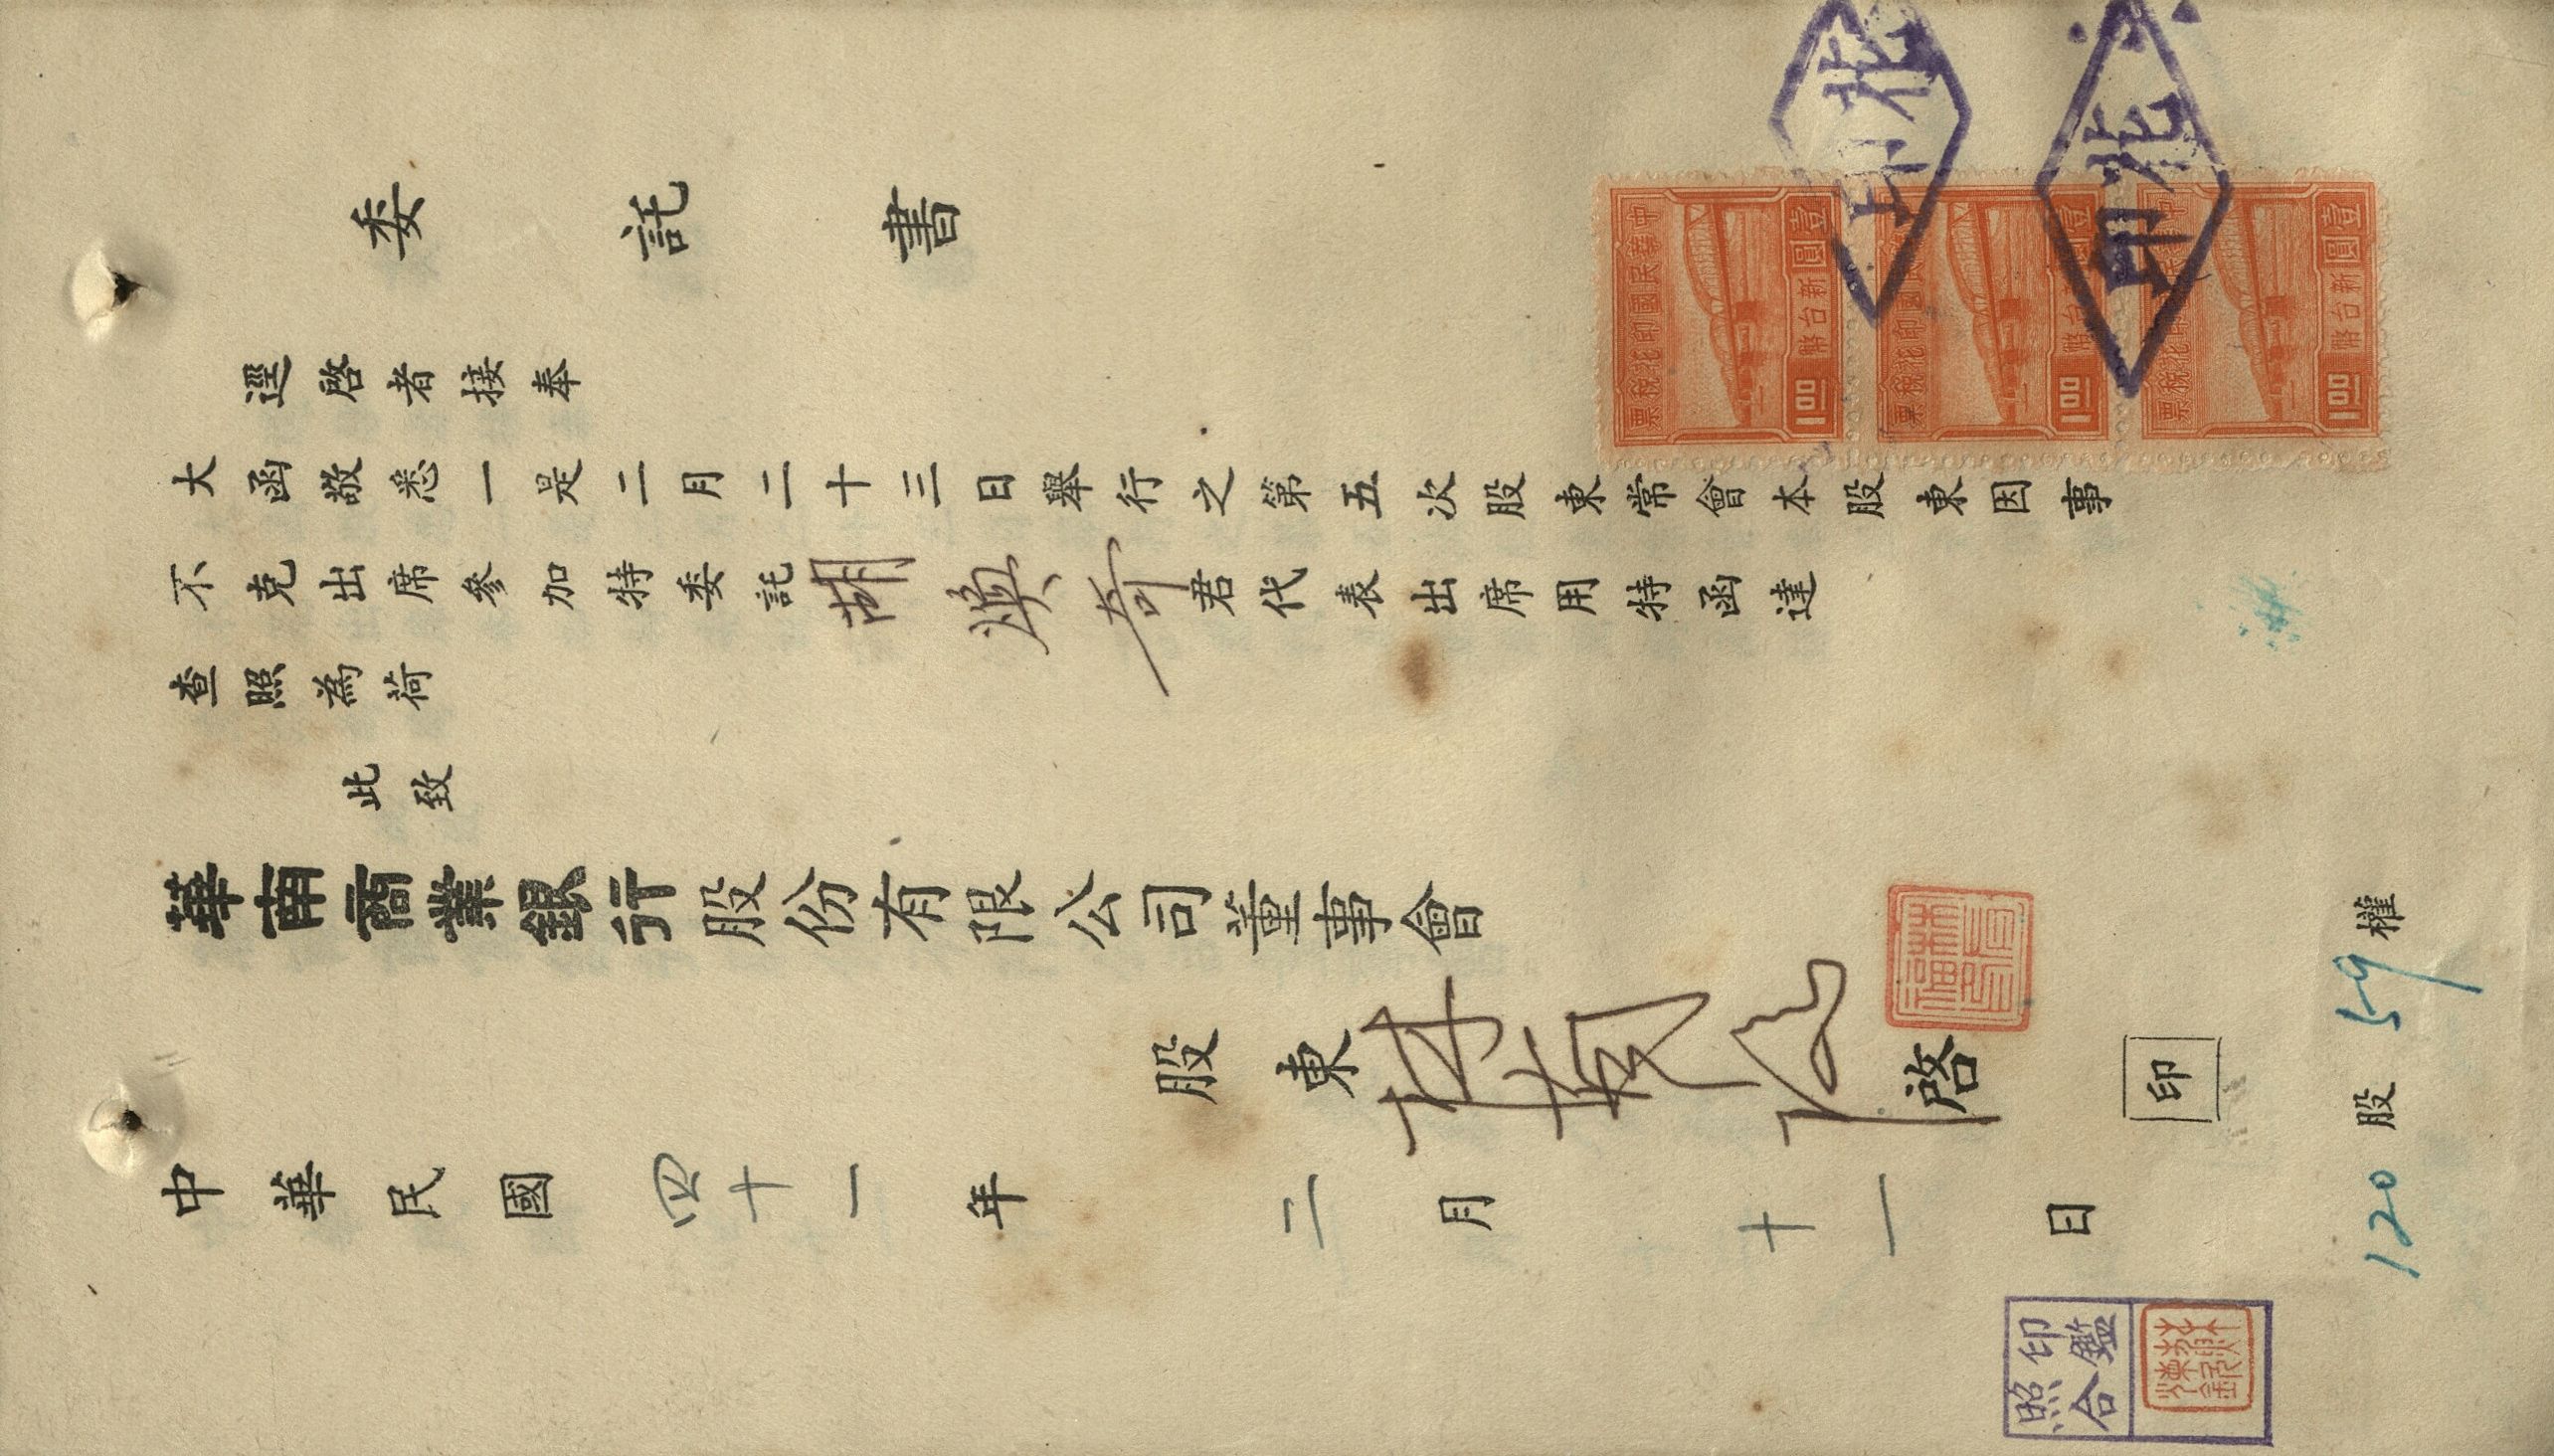 委託書
逕啓者接奉
大函敬悉一是二月二十三日舉行之第五次股東常會本股東因事
不克出席參加特委託胡煥奇君代表出席用特函達
查照為荷
此致
華南商業銀行股份有限公司董事會
股東林 啓
印
中華民國四十一年二月十一日
120股 59權
中華民國印花稅票
壹圓
新台幣
1.00
中華民國印花稅票
壹圓
新台幣
1.00
中華民國印花稅票
壹圓
新台幣
1.00
花印
花印
印鑑
照合